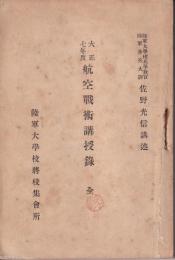 陸軍大學校兵學教官
陸軍歩兵大尉 佐野光信講述
大正七年度 航空戰術講授錄 全
陸軍大學校將校集會所